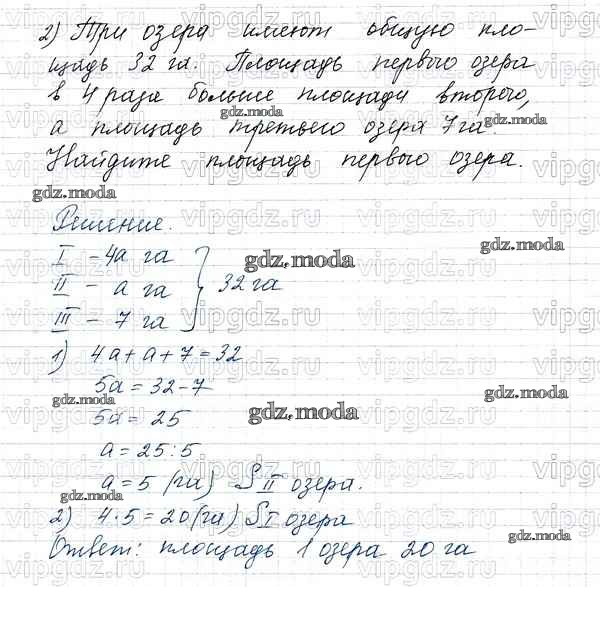 2) Три озера имеют общую пло-
щадь 32 га. Площадь первого озера
в 4 раза больше площади второго,
а площадь третьего озера 7 га.
Найдите площадь первого озера.
Решение.
I – 4а га
II – а га
III – 7 га
32 га
1) 4а + а + 7 = 32
5а = 32 – 7
5а = 25
а = 25 : 5
а = 5 (га) S II озера.
2) 4 · 5 = 20 (га) S I озера
Ответ: площадь 1 озера 20 га
gdz.moda
vipgdz.ru